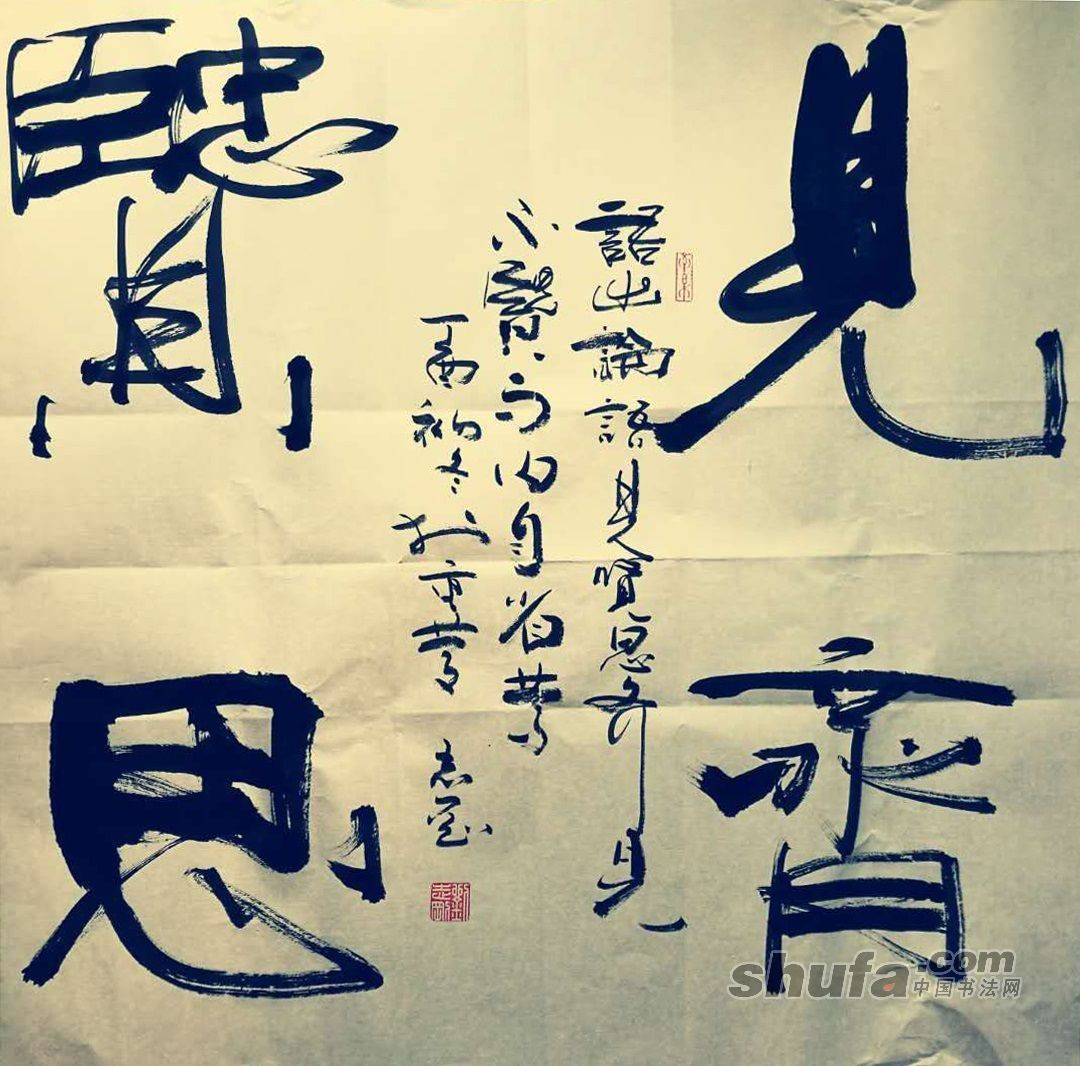 見賢
思齊
出論語見賢思齊見
不賢而内自省
丁酉初冬於
志
shufa.com
中国书法网